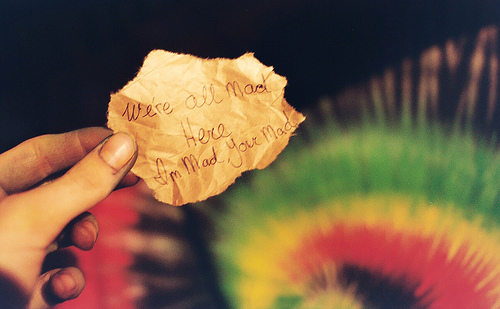 We're all Mad
Here
I'm Mad Your Mad